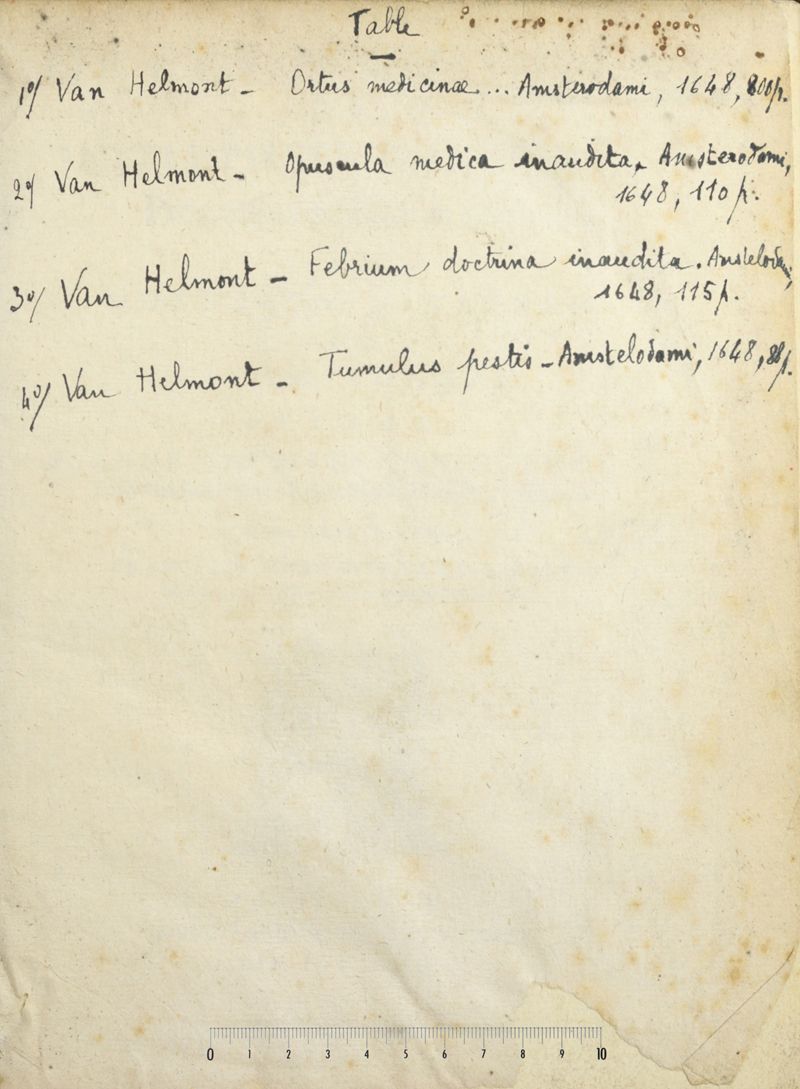 Table
1º/ Van Helmont - Ortus medicinae... Amsterodami, 1648, 800 p.
2º/ Van Helmont - Opuscula medica inaudita. Amsterodami,
1648, 110 p.
3º/ Van Helmont - Febrium doctrina inaudita. Amstelodami,
1648, 115 p.
4º/ Van Helmont - Tumulus pestis - Amstelodami, 1648, 88 p.
0 1 2 3 4 5 6 7 8 9 10